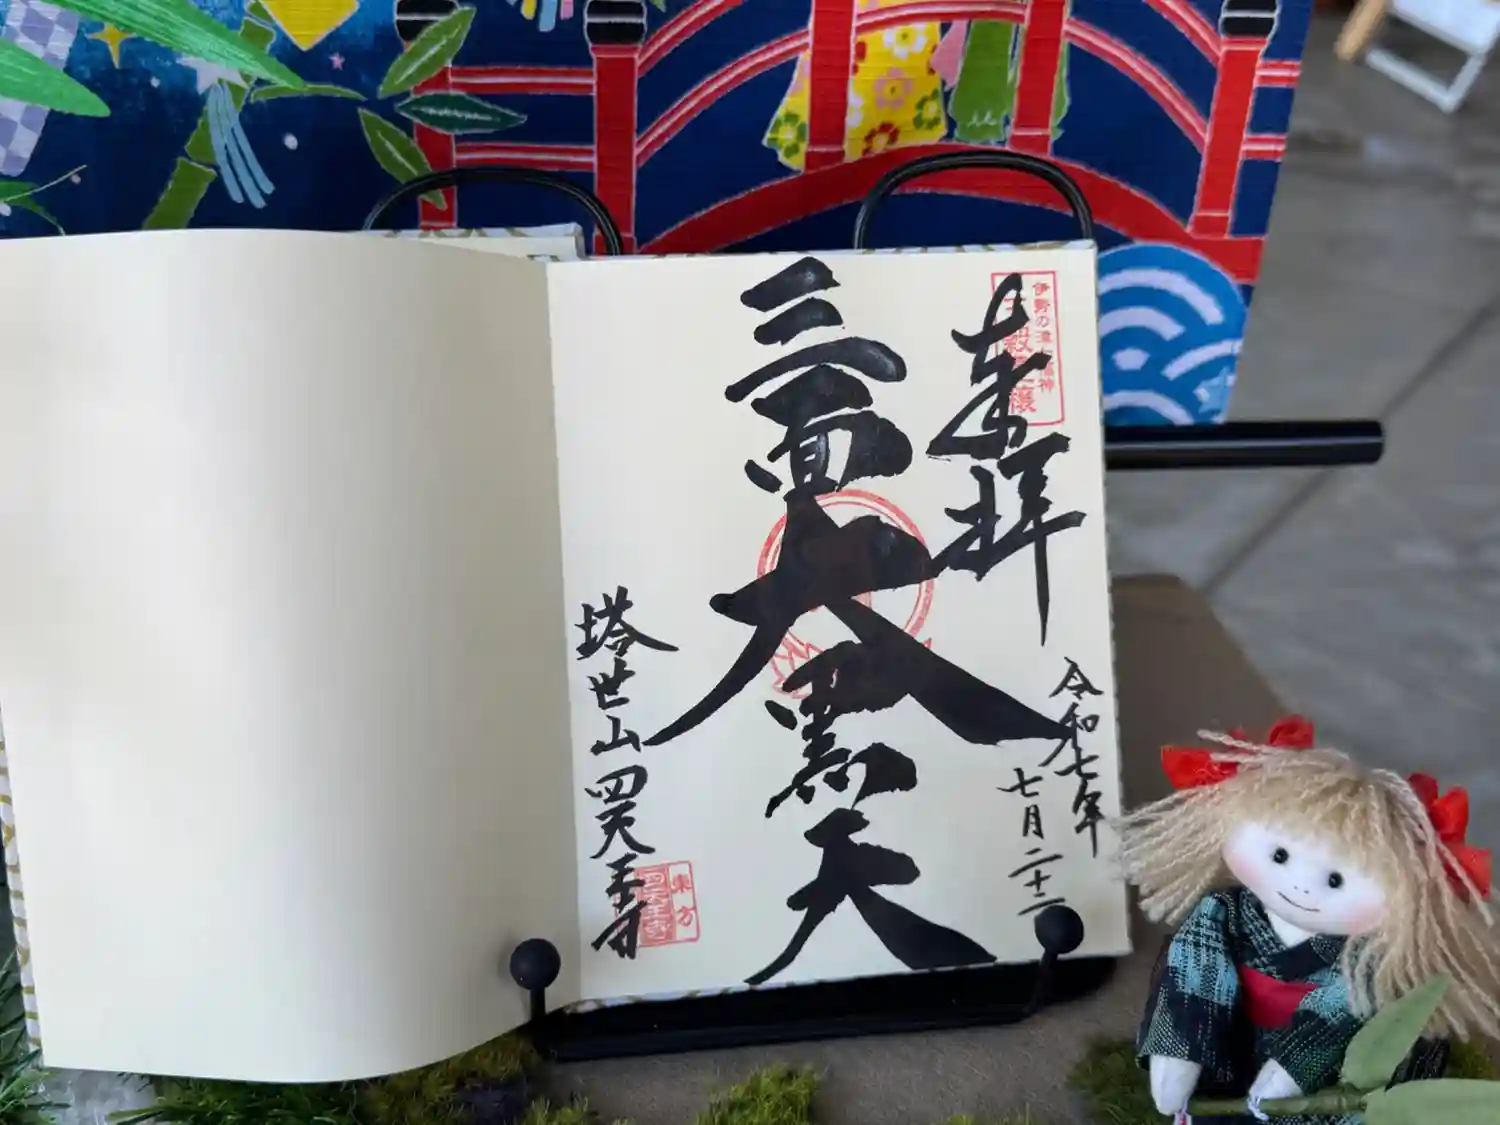 伊勢の津七福神
五穀豊穣
奉拝
令和七年
七月二十二
三面大黒天
塔世山四天王寺
東方